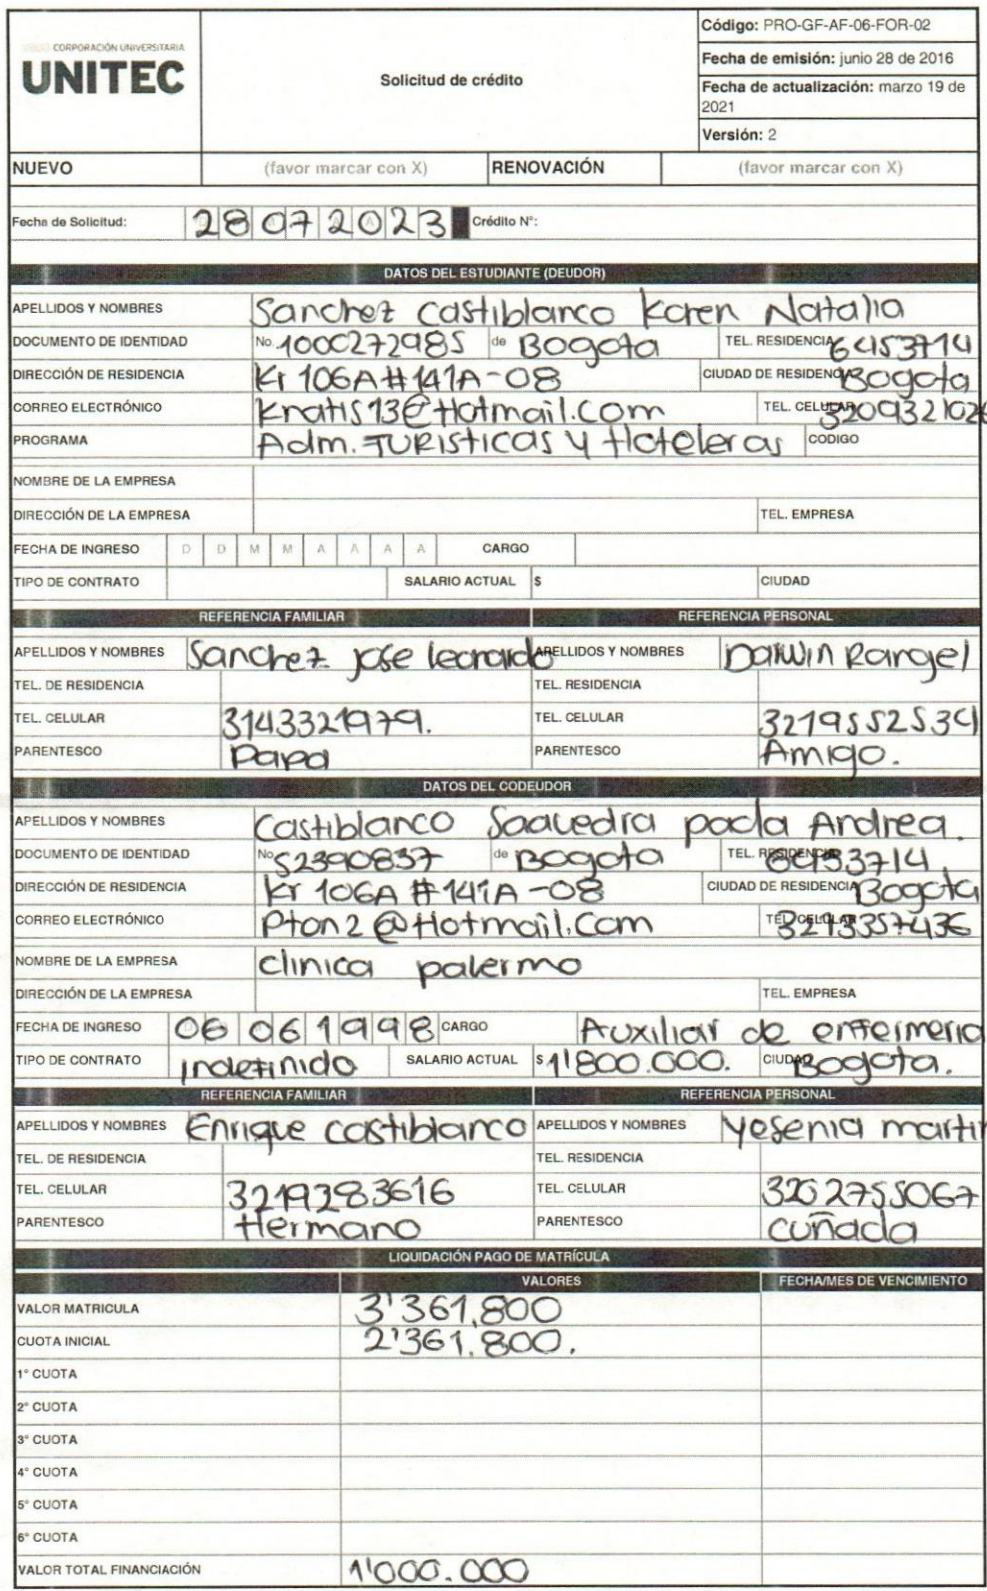 CORPORACIÓN UNIVERSITARIA
UNITEC
Solicitud de crédito
Código: PRO-GF-AF-06-FOR-02
Fecha de emisión: junio 28 de 2016
Fecha de actualización: marzo 19 de 2021
Versión: 2
NUEVO (favor marcar con X) RENOVACIÓN (favor marcar con X)
Fecha de Solicitud: 28072023 Crédito N°:
DATOS DEL ESTUDIANTE (DEUDOR)
APELLIDOS Y NOMBRES Sanchez Castiblanco Karen Natalia
DOCUMENTO DE IDENTIDAD No. 1000272985 de Bogota TEL. RESIDENCIA 6453714
DIRECCIÓN DE RESIDENCIA Kr 106A#141A-08 CIUDAD DE RESIDENCIA Bogota
CORREO ELECTRÓNICO Knatis13@Hotmail.Com TEL. CELULAR 3209321026
PROGRAMA Adm. TURISTICAS y Hoteleras CODIGO
NOMBRE DE LA EMPRESA
DIRECCIÓN DE LA EMPRESA TEL. EMPRESA
FECHA DE INGRESO D D M M A A A A CARGO
TIPO DE CONTRATO SALARIO ACTUAL $ CIUDAD
REFERENCIA FAMILIAR REFERENCIA PERSONAL
APELLIDOS Y NOMBRES Sanchez jose leonardo APELLIDOS Y NOMBRES Darwin Rangel
TEL. DE RESIDENCIA TEL. RESIDENCIA
TEL. CELULAR 3143321979. TEL. CELULAR 3219552534
PARENTESCO Papa PARENTESCO Amigo.
DATOS DEL CODEUDOR
APELLIDOS Y NOMBRES Castiblanco Saavedra paola Andrea.
DOCUMENTO DE IDENTIDAD No 52390837 de Bogota TEL. RESIDENCIA 6933714
DIRECCIÓN DE RESIDENCIA Kr 106A #141A-08 CIUDAD DE RESIDENCIA Bogota
CORREO ELECTRÓNICO Pton2@Hotmail.Com TEL. CELULAR 3213357436
NOMBRE DE LA EMPRESA clinica palermo
DIRECCIÓN DE LA EMPRESA TEL. EMPRESA
FECHA DE INGRESO 06061998 CARGO Auxiliar de enfermeria
TIPO DE CONTRATO indefinido SALARIO ACTUAL $ 1'800.000. CIUDAD Bogota.
REFERENCIA FAMILIAR REFERENCIA PERSONAL
APELLIDOS Y NOMBRES Enrique castiblanco APELLIDOS Y NOMBRES Yesenia martin
TEL. DE RESIDENCIA TEL. RESIDENCIA
TEL. CELULAR 3219283616 TEL. CELULAR 3202755067
PARENTESCO Hermano PARENTESCO cuñada
LIQUIDACIÓN PAGO DE MATRÍCULA
VALORES FECHA/MES DE VENCIMIENTO
VALOR MATRICULA 3'361,800
CUOTA INICIAL 2'361.800.
1° CUOTA
2° CUOTA
3° CUOTA
4° CUOTA
5° CUOTA
6° CUOTA
VALOR TOTAL FINANCIACIÓN 1'000.000